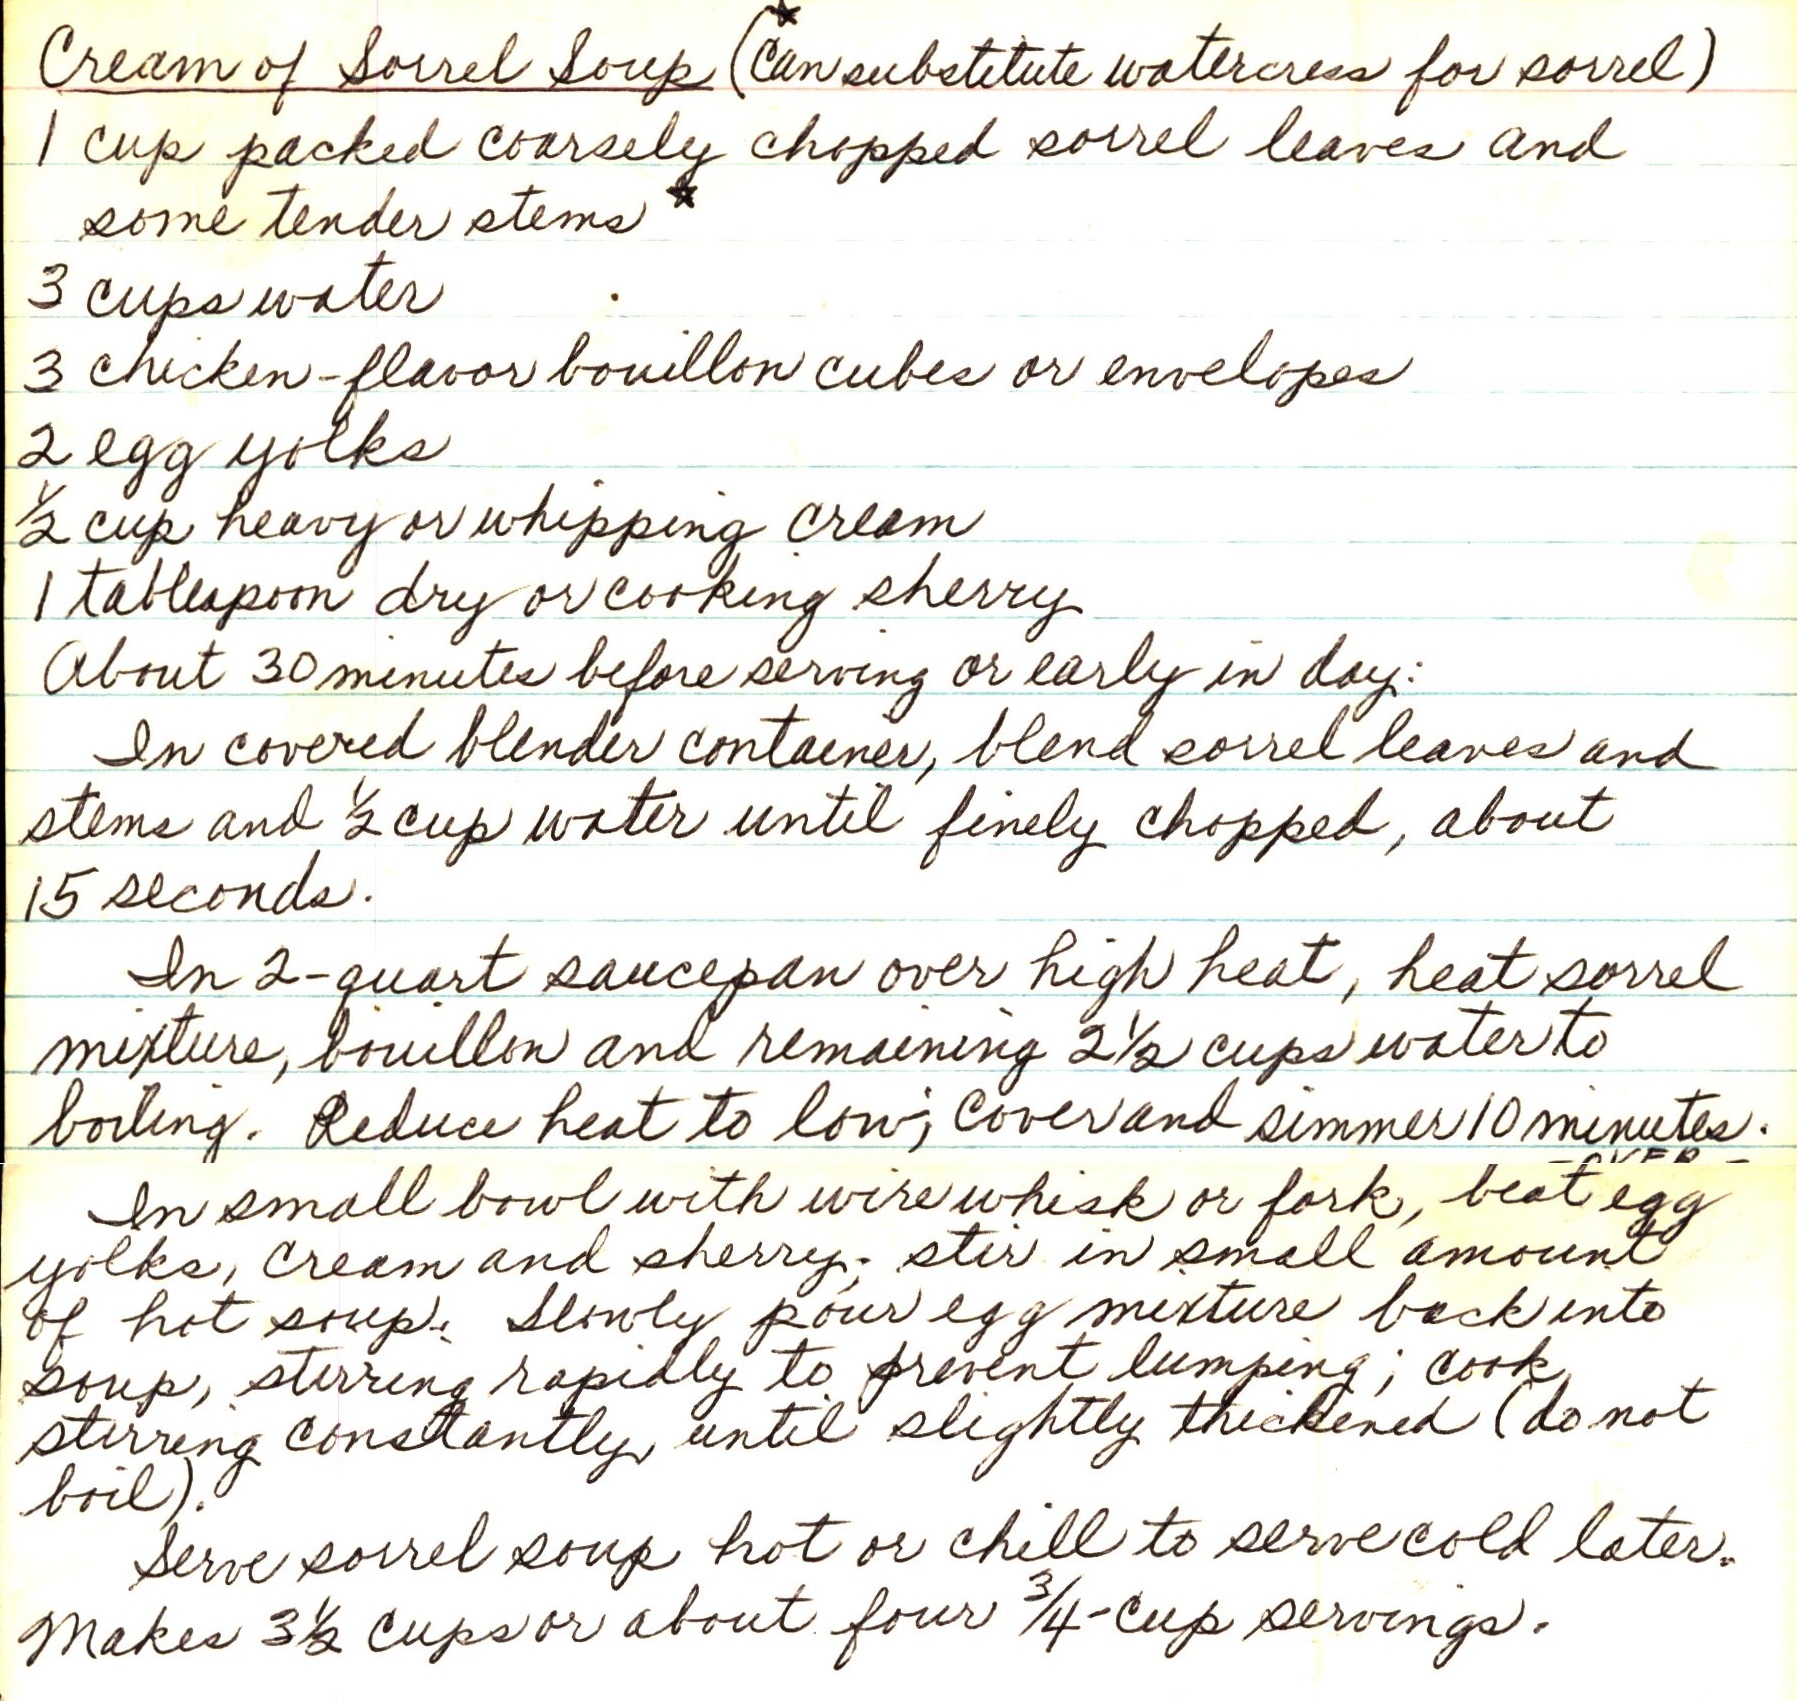 Cream of Sorrel Soup (*can substitute watercress for sorrel)
1 cup packed coarsely chopped sorrel leaves and
some tender stems *
3 cups water
3 chicken-flavor bouillon cubes or envelopes
2 egg yolks
1/2 cup heavy or whipping cream
1 tablespoon dry or cooking sherry
About 30 minutes before serving or early in day:
In covered blender container, blend sorrel leaves and
stems and 1/2 cup water until finely chopped, about
15 seconds.
In 2-quart saucepan over high heat, heat sorrel
mixture, bouillon and remaining 2 1/2 cups water to
boiling. Reduce heat to low; cover and simmer 10 minutes.
- OVER -
In small bowl with wire whisk or fork, beat egg
yolks, cream and sherry; stir in small amount
of hot soup. Slowly pour egg mixture back into
soup, stirring rapidly to prevent lumping; cook,
stirring constantly, until slightly thickened (do not
boil).
Serve sorrel soup hot or chill to serve cold later.
Makes 3 1/2 cups or about four 3/4-cup servings.